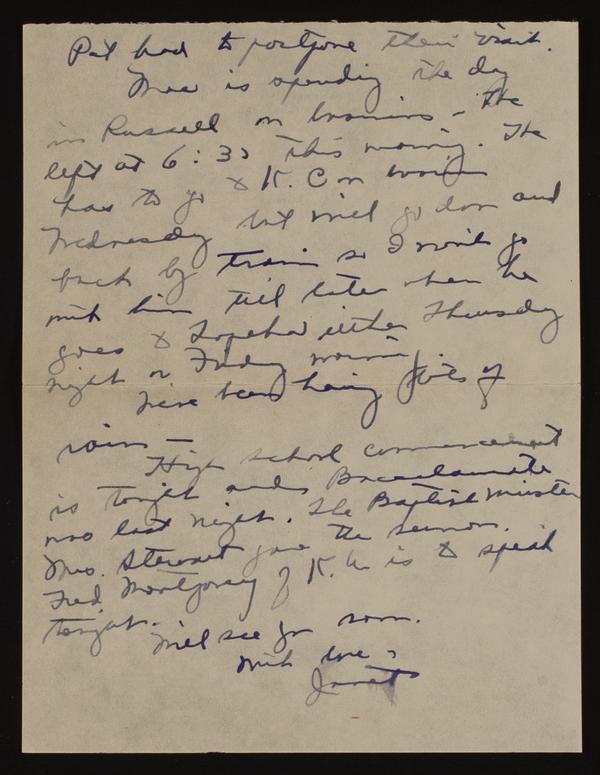 Pat had to postpone their visit.
Mac is spending the day
in Russell on business - He
left at 6:30 this morning. He
has to go to K.C. on
Wednesday but will go down and
back by train so I won't go
with him 'till later when he
goes to Topeka either Thursday
night or Friday morning.
We've been having lots of
rain —
High school commencement
is tonight and Baccalaureate
was last night. The Baptist Minister
Mrs. Stewart gave the sermon.
Fred Montgomery of K.U. is to speak
tonight.
We'll see you soon.
With love,
Janet